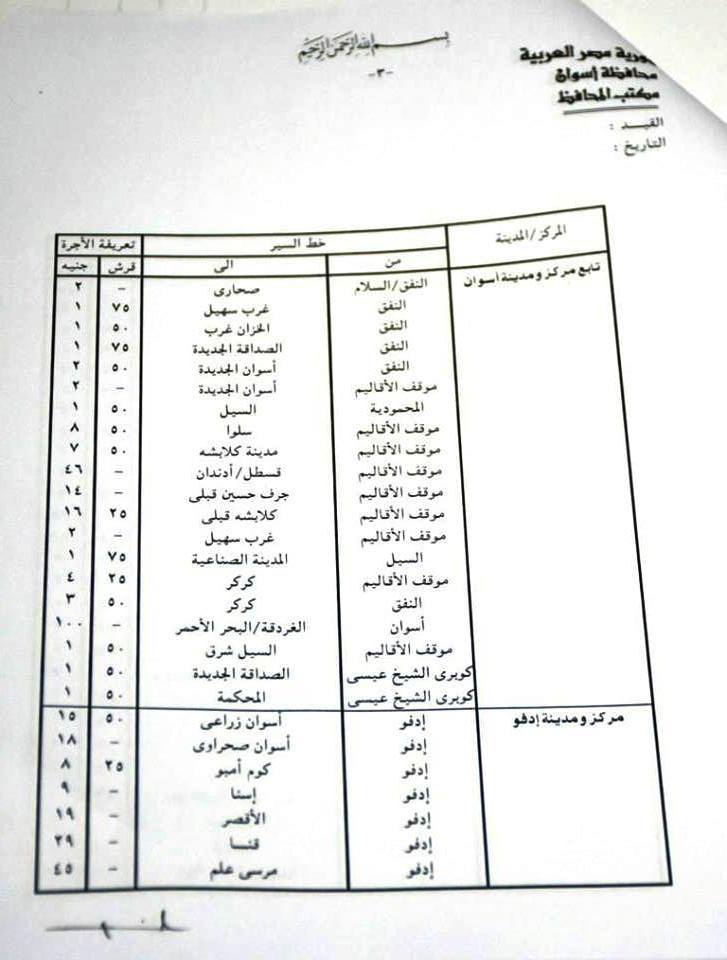 بسم الله الرحمن الرحيم
-٣-
ورية مصر العربية
محافظة أسوان
مكتب المحافظ
القيد :
التاريخ :
المركز/المدينة خط السير تعريفة الأجرة
من الى قرش جنيه
تابع مركز ومدينة أسوان النفق/السلام صحارى - ٢
النفق غرب سهيل ٧٥ ١
النفق الخزان غرب ٥٠ ١
النفق الصداقة الجديدة ٧٥ ١
النفق أسوان الجديدة ٥٠ ٢
موقف الأقاليم أسوان الجديدة - ٢
المحمودية السيل ٥٠ ١
موقف الأقاليم سلوا ٥٠ ٨
موقف الأقاليم مدينة كلابشه ٥٠ ٧
موقف الأقاليم قسطل/أدندان - ٤٦
موقف الأقاليم جرف حسين قبلى - ١٤
موقف الأقاليم كلابشه قبلى ٢٥ ١٦
موقف الأقاليم غرب سهيل - ٢
السيل المدينة الصناعية ٧٥ ١
موقف الأقاليم كركر ٢٥ ٤
النفق كركر ٥٠ ٣
أسوان الغردقة/البحر الأحمر - ١٠٠
موقف الأقاليم السيل شرق ٥٠ ١
كوبرى الشيخ عيسى الصداقة الجديدة ٥٠ ١
كوبرى الشيخ عيسى المحكمة ٥٠ ١
مركز ومدينة إدفو إدفو أسوان زراعى ٥٠ ١٥
إدفو أسوان صحراوى - ١٨
إدفو كوم أمبو ٢٥ ٨
إدفو إسنا - ٩
إدفو الأقصر - ١٩
إدفو قنا - ٢٩
إدفو مرسى علم - ٤٥